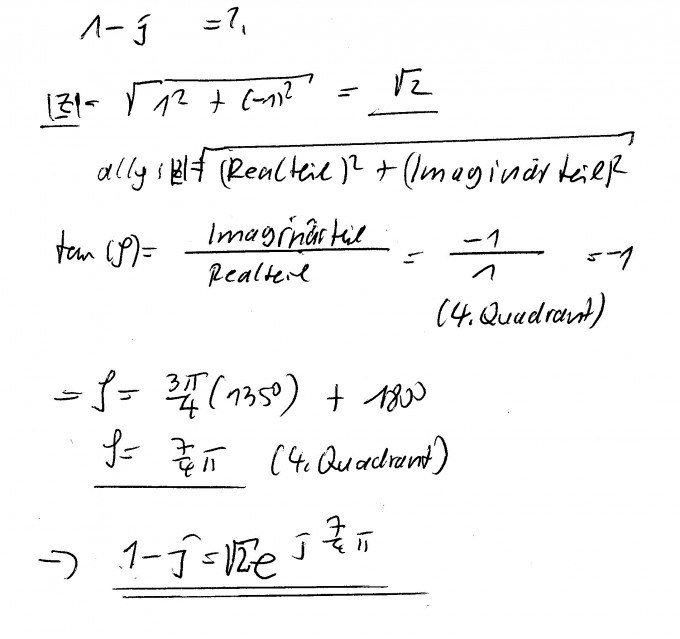 1-j = ?
|z| = √(1² + (-1)²) = √2
allg: |z| = √((Realteil)² + (Imaginärteil)²)
tan(φ) = Imaginärteil / Realteil = -1 / 1 = -1
(4. Quadrant)
= φ = 3π/4 (135°) + 180°
φ = 7/4 π (4. Quadrant)
→ 1-j = √2 e^(j 7/4 π)